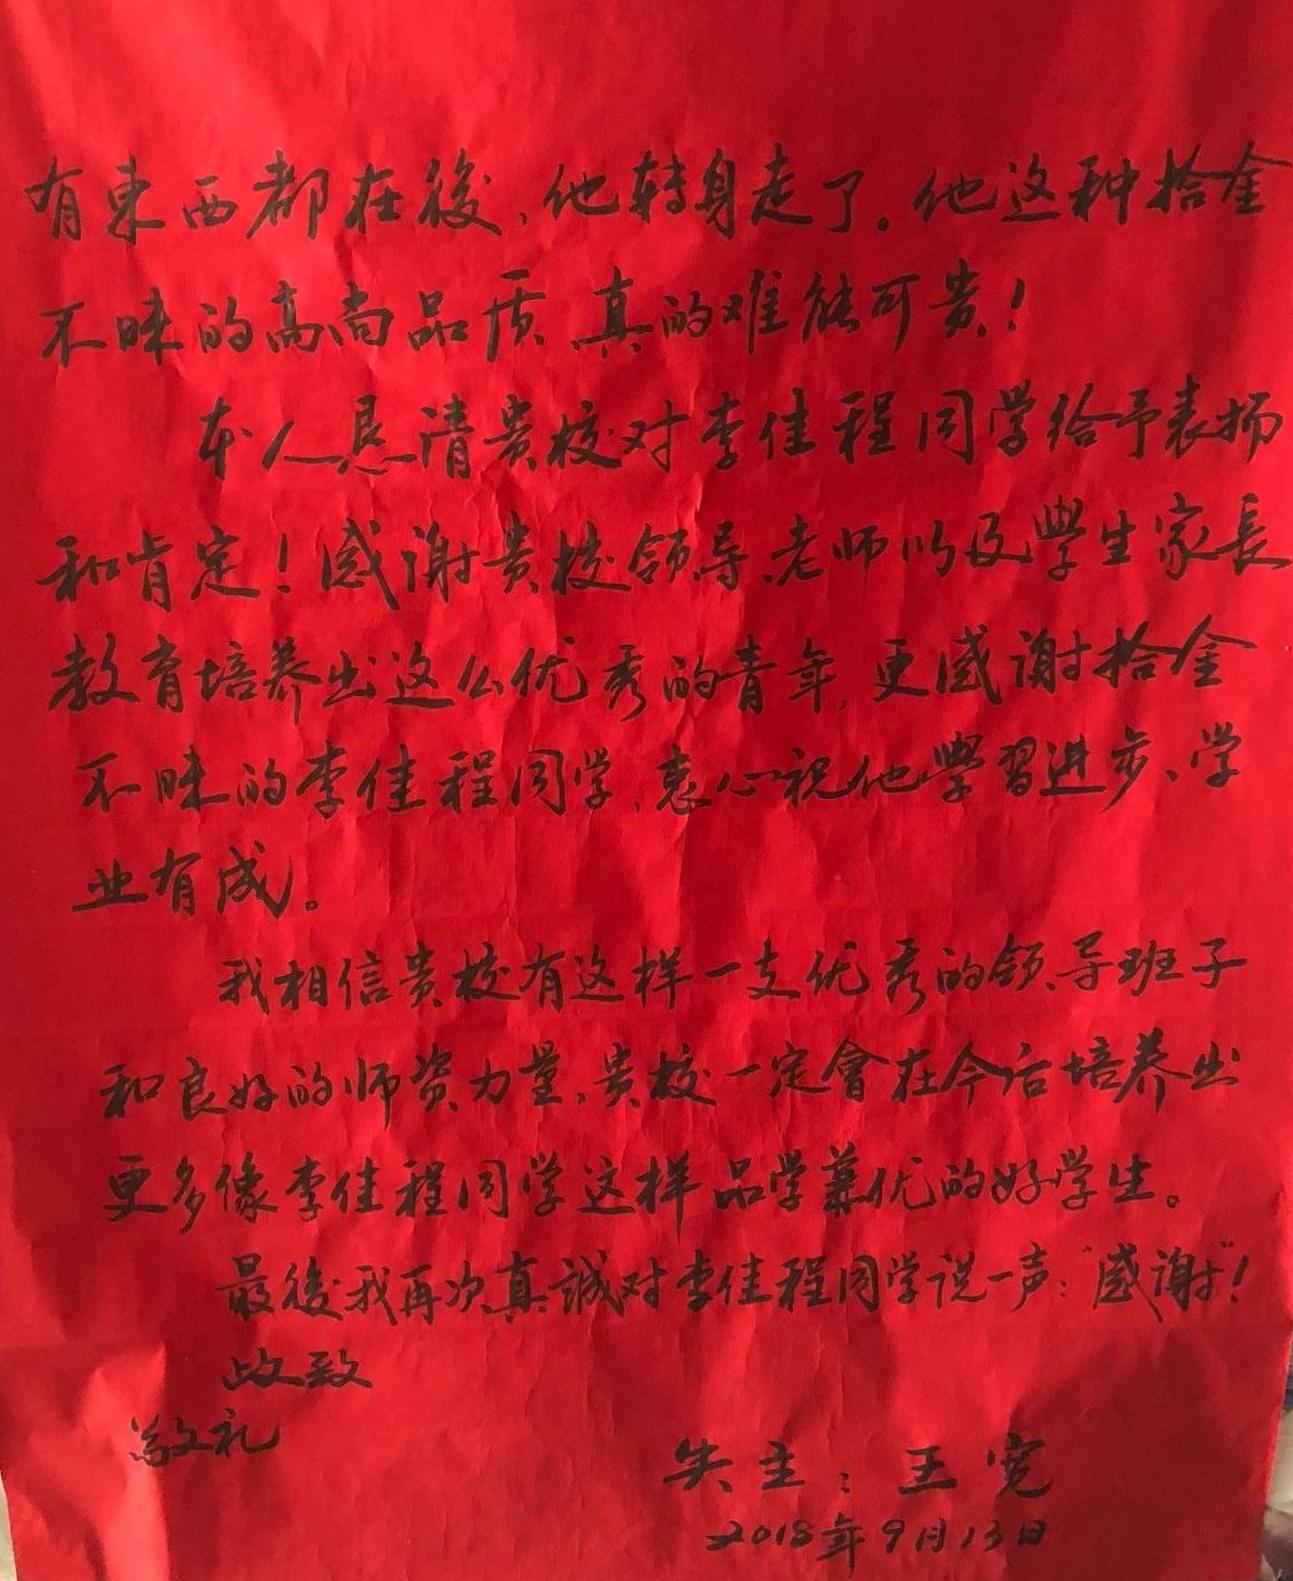 有東西都在後，他转身走了。他这种拾金
不昧的高尚品质真的难能可贵！
本人恳请贵校对李佳程同学给予表扬
和肯定！感谢贵校领导、老师以及學生家長
教育培养出这么优秀的青年，更感谢拾金
不昧的李佳程同学，衷心祝他學習进步、学
业有成。
我相信贵校有这样一支优秀的领导班子
和良好的师资力量，贵校一定會在今后培养出
更多像李佳程同学这样品学兼优的好学生。
最後我再次真誠对李佳程同学说一声：“感谢”！
此致
敬礼
失主：王宽
2018年9月13日